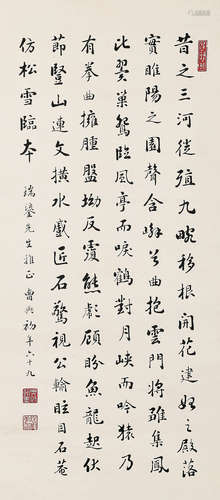 昔之三河徙殖九畹移根開花建始之殿落
實睢陽之園聲含嶰谷曲抱雲門將雛集鳳
比翼巢鴛臨風亭而唳鶴對月峽而吟猿乃
有拳曲擁腫盤坳反覆熊彪顧盼魚龍起伏
節豎山連文橫水蹙匠石驚視公輸眩目石菴
仿松雪臨本
瑞鎏先生雅正 曹典初年六十九